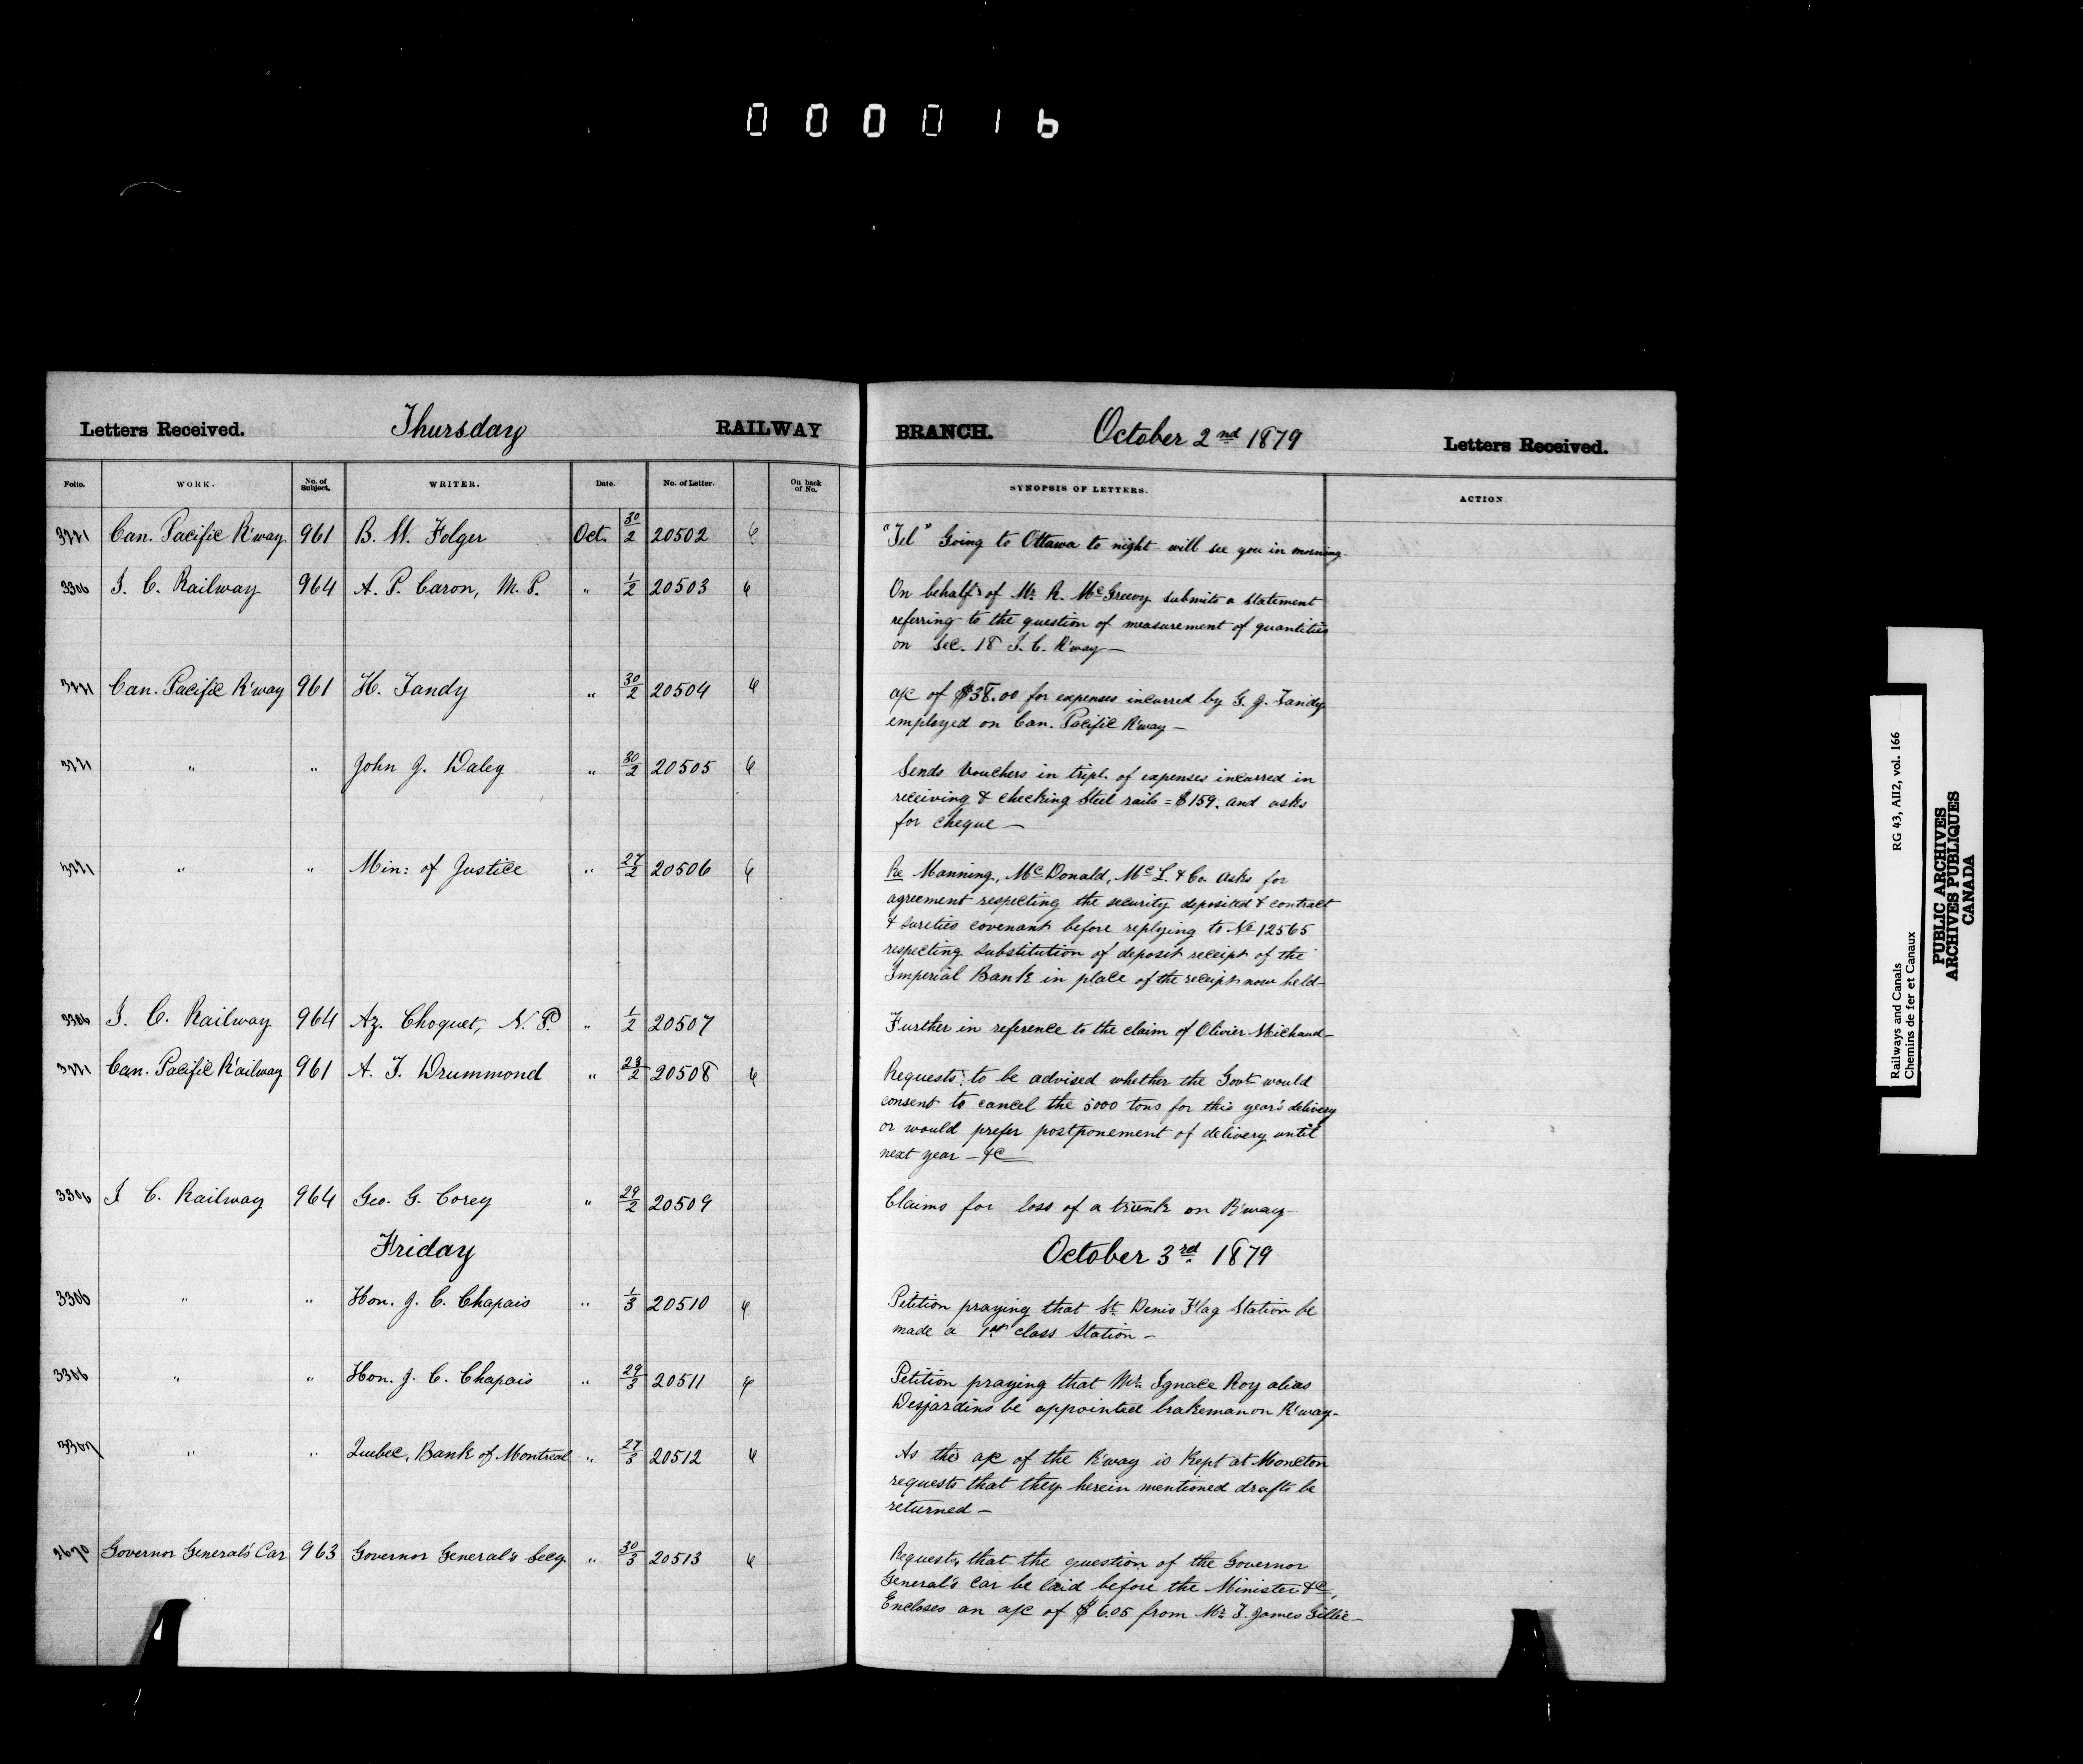 000016
Letters Received. Thursday RAILWAY BRANCH. October 2nd 1879 Letters Received.
Folio. WORK. No. of Subject. WRITER. Date. No. of Letter. On back of No. SYNOPSIS OF LETTERS. ACTION
Can. Pacific R'way 961 B. W. Folger Oct. 30/2 20502 "Tel" Going to Ottawa to night will see you in morning
3306 I. C. Railway 964 A. P. Caron, M. P. " 1/2 20503 On behalf of Mr. R. McGreevy submits a statement
referring to the question of measurement of quantities
on Sec. 18 I. C. R'way—
Can. Pacific R'way 961 H. Tandy " 30/2 20504 a/c of $38.00 for expenses incurred by G. J. Tandy
employed on Can. Pacific R'way—
" " John J. Daley " 30/2 20505 Sends Vouchers in tript. of expenses incurred in
receiving & checking Steel rails = $159. and asks
for cheque—
" " Min: of Justice " 27/2 20506 Re Manning, McDonald, McL. & Co. asks for
agreement respecting the security deposited & contract
& sureties covenant before replying to No 12565
respecting substitution of deposit receipt of the
Imperial Bank in place of the receipt now held—
3306 I. C. Railway 964 Az. Choquet, N. P. " 1/2 20507 Further in reference to the claim of Olivier Michaud—
Can. Pacific R'ailway 961 A. T. Drummond " 28/2 20508 Requests to be advised whether the Govt would
consent to cancel the 5000 tons for this year's delivery
or would prefer postponement of delivery until
next year—&c
3306 I C. Railway 964 Geo. G. Corey " 29/2 20509 Claims for loss of a trunk on R'way
Friday October 3rd 1879
3306 " " Hon. J. C. Chapais " 1/3 20510 Petition praying that St. Denis Flag Station be
made a 1st class Station—
3306 " " Hon. J. C. Chapais " 29/3 20511 Petition praying that Mr. Ignace Roy alias
Desjardins be appointed brakeman on R'way—
3307 " " Quebec, Bank of Montreal " 27/3 20512 As the a/c of the R'way is kept at Moncton
requests that they herein mentioned drafts be
returned—
Governor General's Car 963 Governor General's Secy. " 30/3 20513 Requests that the question of the Governor
General's Car be laid before the Minister &c.
Encloses an a/c of $6.05 from Mr. T. James
Railways and Canals RG 43, AII2, vol. 166
Chemins de fer et Canaux
PUBLIC ARCHIVES
ARCHIVES PUBLIQUES
CANADA